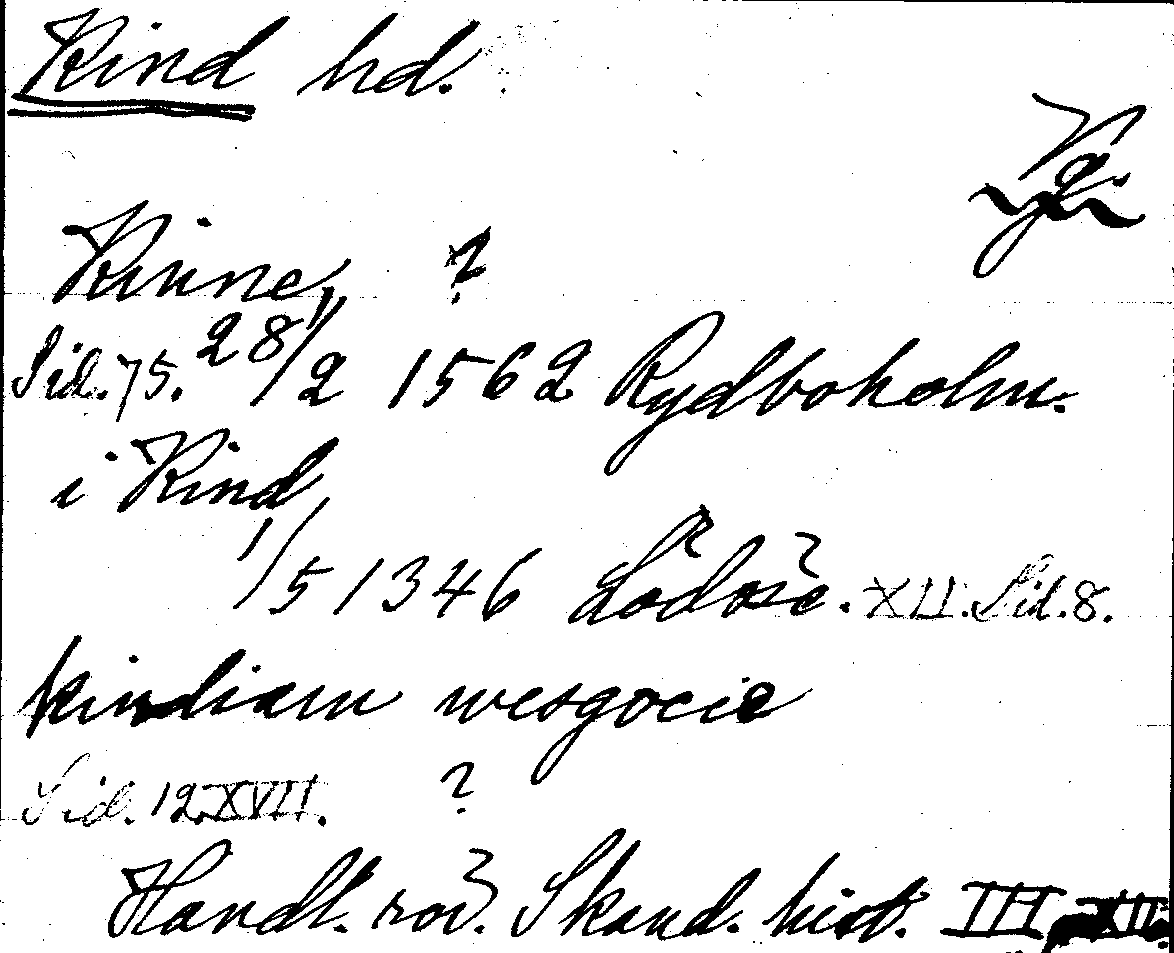 Kind hd.
Vg.
Kinne, ?
Sid. 75. 28/2 1562 Rydboholm.
i Kind
1/5 1346 Lödöse. XII. Sid. 8.
kindiam wesgocie
Sid. 12. XVII. ?
Handl. rör. Skand. hist. III XII.